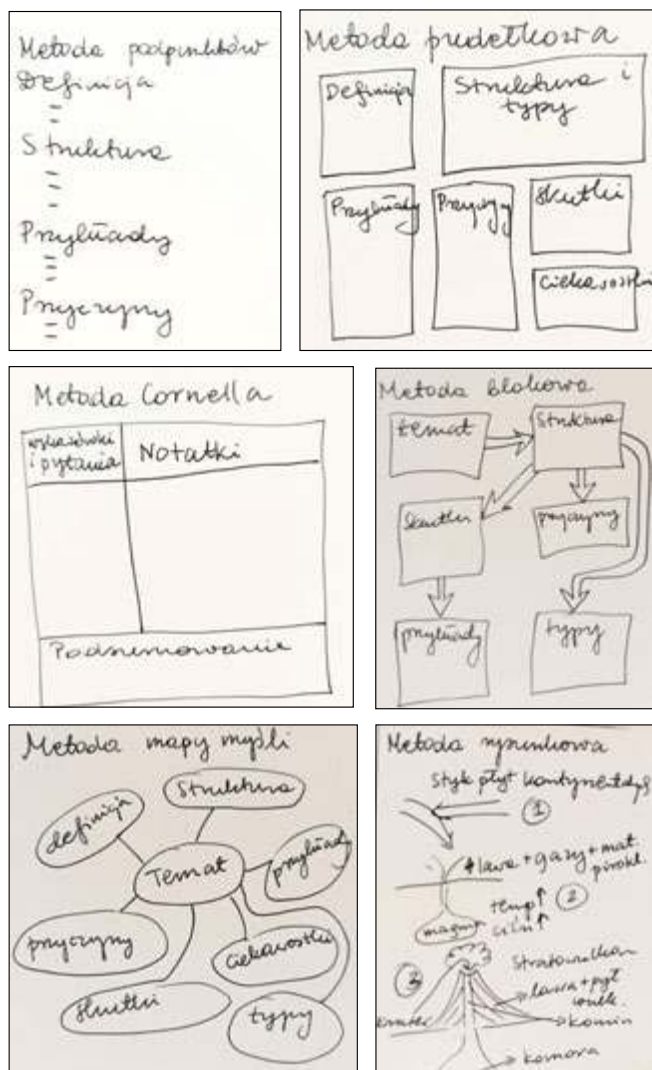 Metoda podpunktów
Definicja
Struktura
Przykłady
Przyczyny
Metoda pudełkowa
Definicja
Struktura i
typy
Przykłady
Przyczyny
Skutki
Ciekawostki
Metoda Cornella
wskazówki
i pytania
Notatki
Podsumowanie
Metoda blokowa
temat
Struktura
skutki
przyczyny
przykłady
typy
Metoda mapy myśli
Struktura
definicja
Temat
przykłady
przyczyny
Ciekawostki
skutki
typy
Metoda rysunkowa
Styk płyt kontynentalnych
1
lawa + gazy + mat.
pirokl.
temp ↑
ciśn ↑
2
magma
3
Stratowulkan
lawa + pył
wulk.
krater
komin
komora